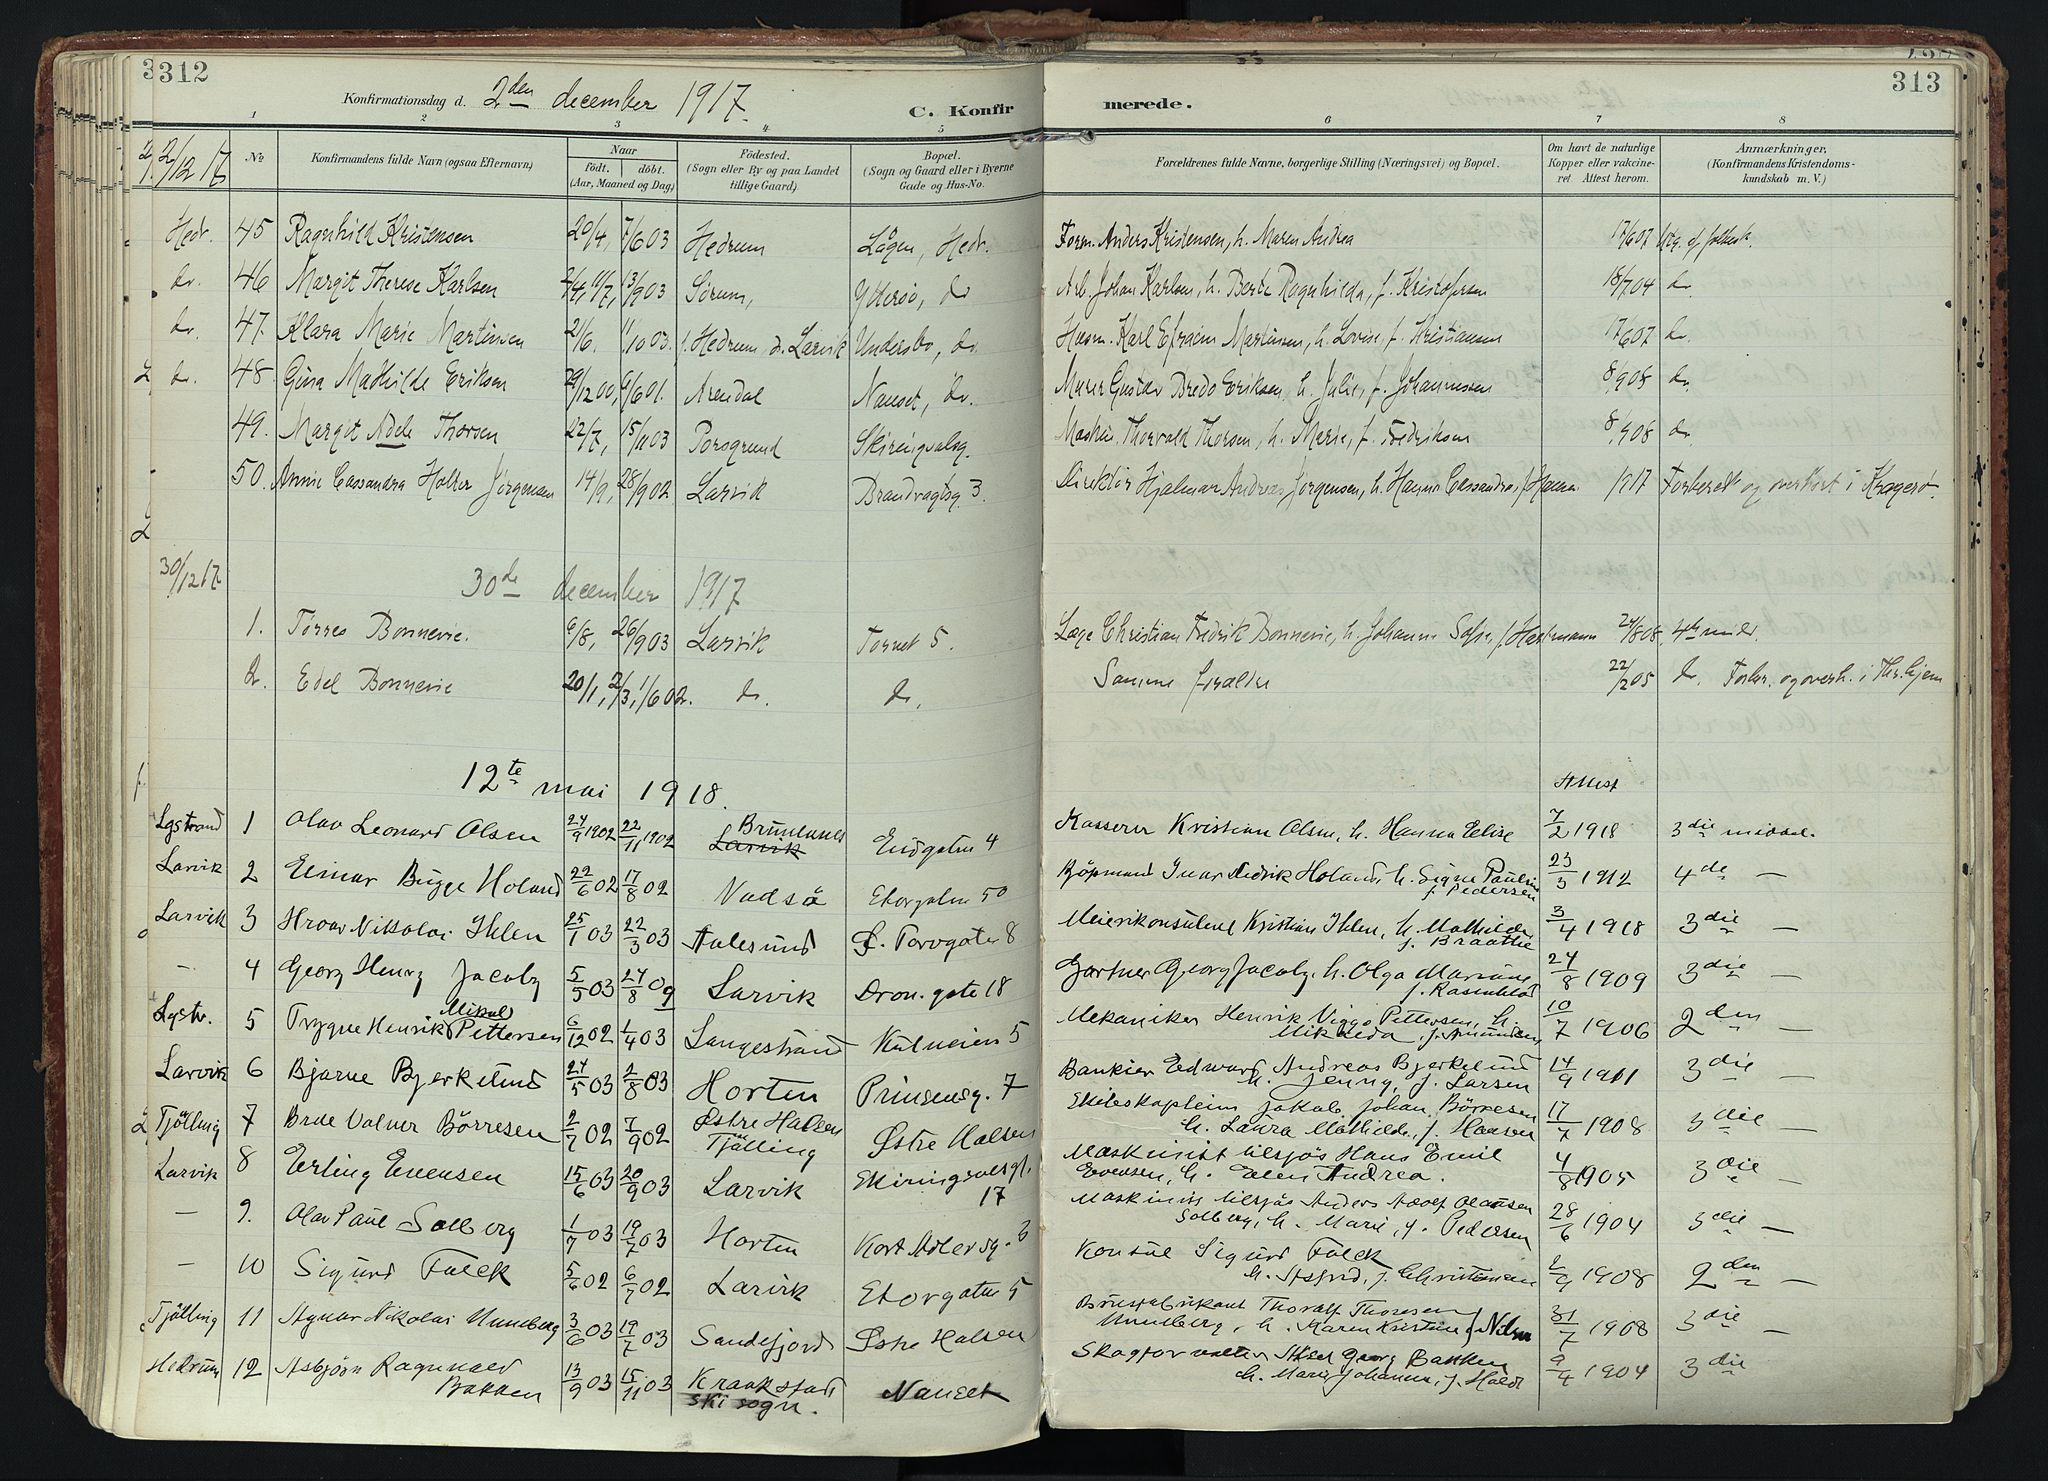 312
Konfirmationsdag d. 2den december 1917.
C. Konfirmerede.
313
1 2 3 4 5 6 7 8
2/12 17
No
Konfirmandens fulde Navn (ogsaa Efternavn)
Naar
født. døbt.
(Aar, Maaned og Dag)
Fødested.
(Sogn eller By og paa Landet tillige Gaard)
Bopæl.
(Sogn og Gaard eller i Byerne Gade og Hus-No.
Forældrenes fulde Navne, borgerlige Stilling (Næringsvei) og Bopæl.
Om havt de naturlige Kopper eller vakcineret Attest herom.
Anmærkninger.
(Konfirmandens Kristendomskundskab m. V.)
Hedr. 45 Ragnhild Kristensen 20/4, 7/6 03 Hedrum Lågen, Hedr. Form. Anders Kristensen, h. Maren Andrea 17/6 07
do. 46 Margit Therese Karlsen 13/9 03 Sørum, Yttersø, do Arb. Johan Karlsen, h. Berte Ragnhilda, f. Kristofersen 18/7 04 do.
do. 47. Klara Marie Martinsen 21/6. 11/10 03. f. Hedrum, d. Larvik Undersbo, do. Husm. Karl Efraim Martinsen, h. Lovise, f. Kristiansen 17/6 07 do.
do. 48. Gina Mathilde Eriksen 29/12 00, 9/6 01. Arendal Nanset, do. Murer Gustav Bredo Eriksen, h. Julie, f. Johannessen 8/9 08 do.
49. Margit Adele Thorsen 22/7, 15/11 03 Porsgrund Skiringsalsg. Maskin. Thorvald Thorsen, h. Marie, f. Fredriksen 8/9 08 do.
50. Annie Cassandra Holter Jörgensen 14/9, 28/9 02. Larvik Brandvagtsg. 3. Direktör Hjalmar Andreas Jörgensen, h. Hagna Cassandra, f. 1917 Forberedt og overhört i Kragerø.
30/12 17.
30de december 1917
1. Törres Bonnevie. 6/8, 26/9 03 Larvik Torvet 5. Læge Christian Fredrik Bonnevie, h. Johanne Sofie, f. Hartmann 24/8 08. 4de midd.
2. Edel Bonnevie 20/1, 2/3, 1/6 02. do. do. Samme forældre 22/2 05 do. Forber. og overh. i Thr.hjem
12te mai 1918.
Attest
Lgstrand 1 Olav Leonard Olsen 24/9 1902 22/11 1902 Brunlanes Larvik Eidgaten 4 Kasserer Kristian Olsen, h. Hanna Elise 7/2 1918 3die middel.
Larvik 2 Einar Bugge Holand 22/6 02 17/8 02 Vadsö Storgaten 50 Kjöpmand Ivar Didrik Holand, h. Signe Pauline
f. Pedersen 23/5 1912 4de —
Larvik 3 Hroar Nikolai Ihlen 25/1 03 22/3 03 Aalesund Ø. Torvgaten 8 Meierikonsulent Kristian Ihlen, h. Mathilde,
f. Braathe 3/4 1918 3die —
— 4 Georg Henry Jacoby 5/5 03 24/8 09 Larvik Dron.gate 18 Gartner Georg Jacoby, h. Olga Mariane,
f. Rosenblad 24/8 1909 3die —
Lgstr. 5 Trygve Henrik Mikal Pettersen 6/12 02 1/4 03 Langestrand Kulveien 5 Mekaniker Henrik Viggo Pettersen, h.
Mikalda, f. Amundsen 10/7 1906 2den —
Larvik 6 Bjarne Bjerkelund 24/5 03 2/8 03 Horten Prinsensg. 7 Bankier Edward Andreas Bjerkelund
h. Jenny, f. Larsen 14/9 1911 3die —
Tjölling 7 Brde Valner Börresen 2/7 02 7/9 02 Østre Halsen
Tjölling Østre Halsen Seileskaptein Jakob Johan Börresen
h. Laura Mathilde, f. Hansen 17/7 1908 3die —
Larvik 8 Erling Evensen 15/6 03 20/9 03 Larvik Skiringsalsgt.
17 Maskinist tilsjös Hans Emil
Evensen, h. Elen Andrea. 4/8 1905 3die —
— 9. Olav Paul Solberg 1/7 03 19/7 03 Horten Kort Adlersg. 3 Maskinist tilsjös Anders Adolf Olausen
Solberg, h. Marie, f. Pedersen 28/6 1904 3die —
— 10 Sigurd Falck 5/6 02 6/7 02 Larvik Storgaten 5 Konsul Sigurd Falck
h. Astrid, f. Christensen 2/9 1908 2den —
Tjölling 11 Agnar Nikolai Unneberg 3/6 03 19/7 03 Sandefjord Østre Halsen Brusfabrikant Thoralf Thoresen
Unneberg, h. Karen Kristine f. Nilsen 31/7 1908 3die —
Hedrum 12 Asbjörn Ragnvald
Bakken 13/9 03 15/11 03 Kraakstad
Ski sogn. Nanset Skogforvalter Aksel Georg Bakken
h. Marie Johanna, f. Holdt 9/4 1904 3die